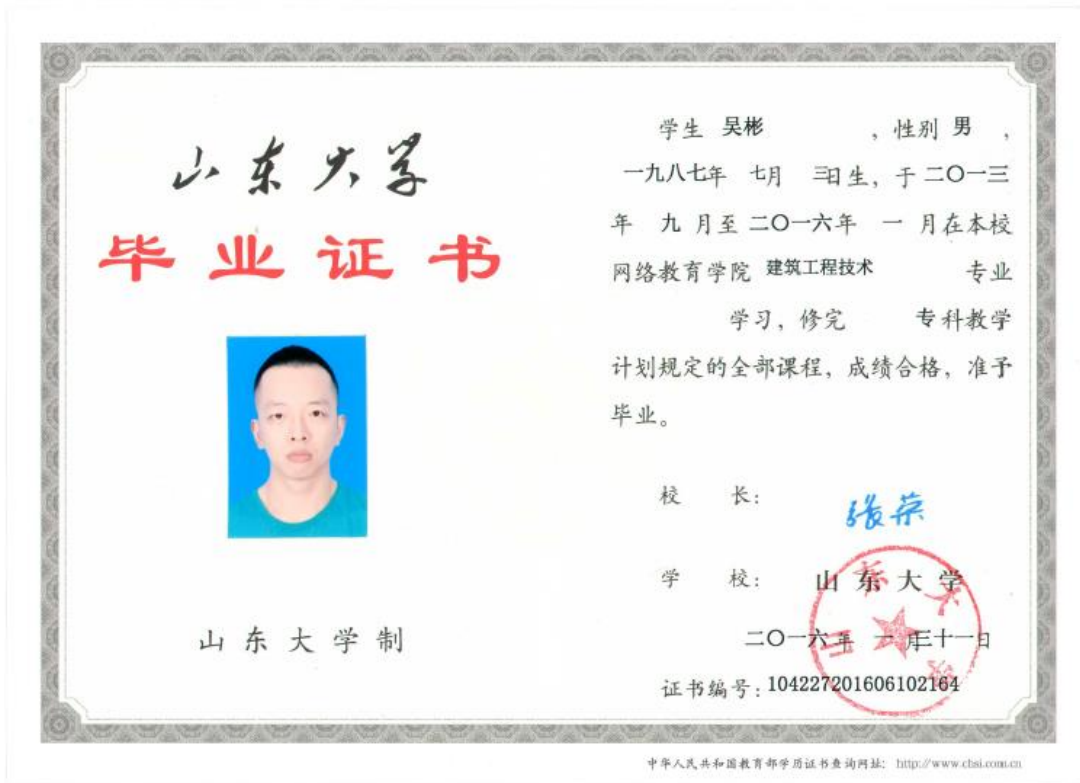 山东大学
毕业证书
山东大学制
学生 吴彬 ，性别 男 ，
一九八七年 七月 三日生，于二〇一三
年 九 月至 二〇一六年 一 月在本校
网络教育学院 建筑工程技术 专业
学习，修完 专科教学
计划规定的全部课程，成绩合格，准予
毕业。
校 长：
张荣
学 校： 山东大学
二〇一六年 一月三十一日
证书编号：104227201606102164
中华人民共和国教育部学历证书查询网址： http://www.chsi.com.cn